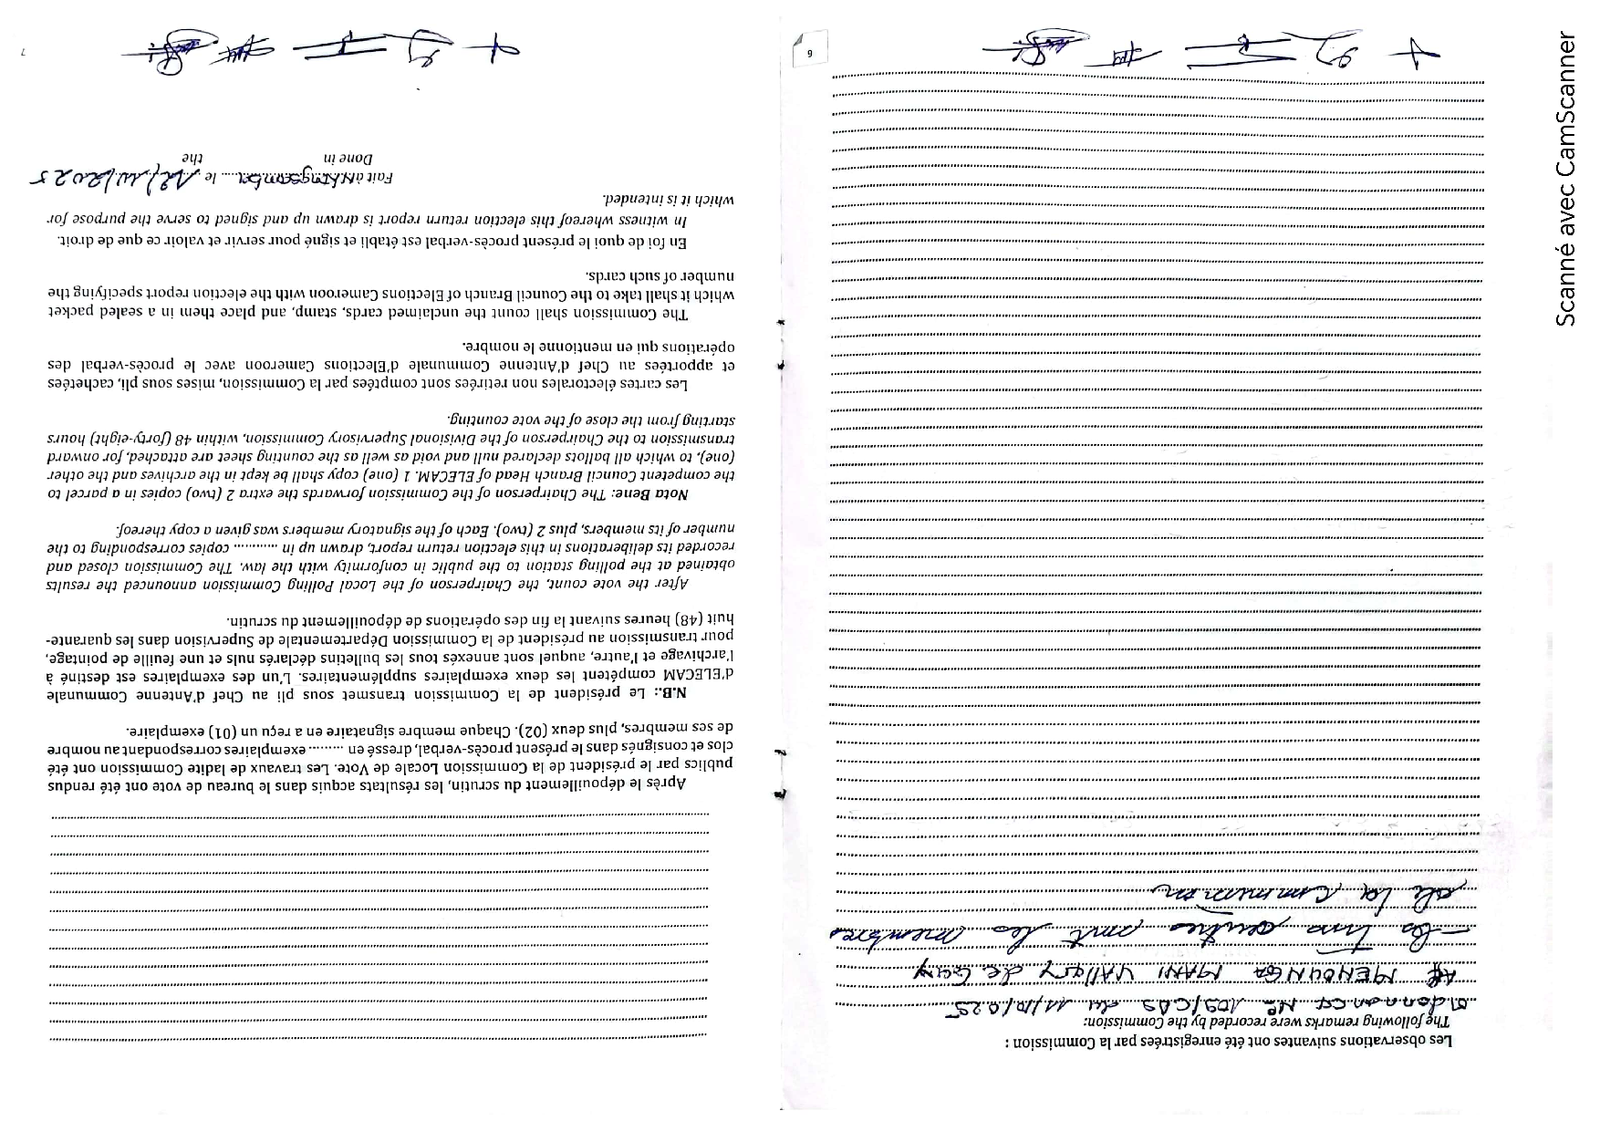 Les observations suivantes ont été enregistrées par la Commission :
The following remarks were recorded by the Commission:
Ordonnance N° 109/CAS du 11/10/2025
MENDUNGA MANI VALLery de Guy
- les trois autres sont les membres
de la commission
6
Après le dépouillement du scrutin, les résultats acquis dans le bureau de vote ont été rendus
publics par le président de la Commission Locale de Vote. Les travaux de ladite Commission ont été
clos et consignés dans le présent procès-verbal, dressé en ......... exemplaires correspondant au nombre
de ses membres, plus deux (02). Chaque membre signataire en a reçu un (01) exemplaire.
N.B.: Le président de la Commission transmet sous pli au Chef d'Antenne Communale
d'ELECAM compétent les deux exemplaires supplémentaires. L'un des exemplaires est destiné à
l'archivage et l'autre, auquel sont annexés tous les bulletins déclarés nuls et une feuille de pointage,
pour transmission au président de la Commission Départementale de Supervision dans les quarante-
huit (48) heures suivant la fin des opérations de dépouillement du scrutin.
After the vote count, the Chairperson of the Local Polling Commission announced the results
obtained at the polling station to the public in conformity with the law. The Commission closed and
recorded its deliberations in this election return report, drawn up in ........... copies corresponding to the
number of its members, plus 2 (two). Each of the signatory members was given a copy thereof.
Nota Bene: The Chairperson of the Commission forwards the extra 2 (two) copies in a parcel to
the competent Council Branch Head of ELECAM. 1 (one) copy shall be kept in the archives and the other
(one), to which all ballots declared null and void as well as the counting sheet are attached, for onward
transmission to the Chairperson of the Divisional Supervisory Commission, within 48 (forty-eight) hours
starting from the close of the vote counting.
Les cartes électorales non retirées sont comptées par la Commission, mises sous pli, cachetées
et apportées au Chef d'Antenne Communale d'Elections Cameroon avec le procès-verbal des
opérations qui en mentionne le nombre.
The Commission shall count the unclaimed cards, stamp, and place them in a sealed packet
which it shall take to the Council Branch of Elections Cameroon with the election report specifying the
number of such cards.
En foi de quoi le présent procès-verbal est établi et signé pour servir et valoir ce que de droit.
In witness whereof this election return report is drawn up and signed to serve the purpose for
which it is intended.
Fait à ..... le 12/10/2025
Done in the
7
Scanné avec CamScanner